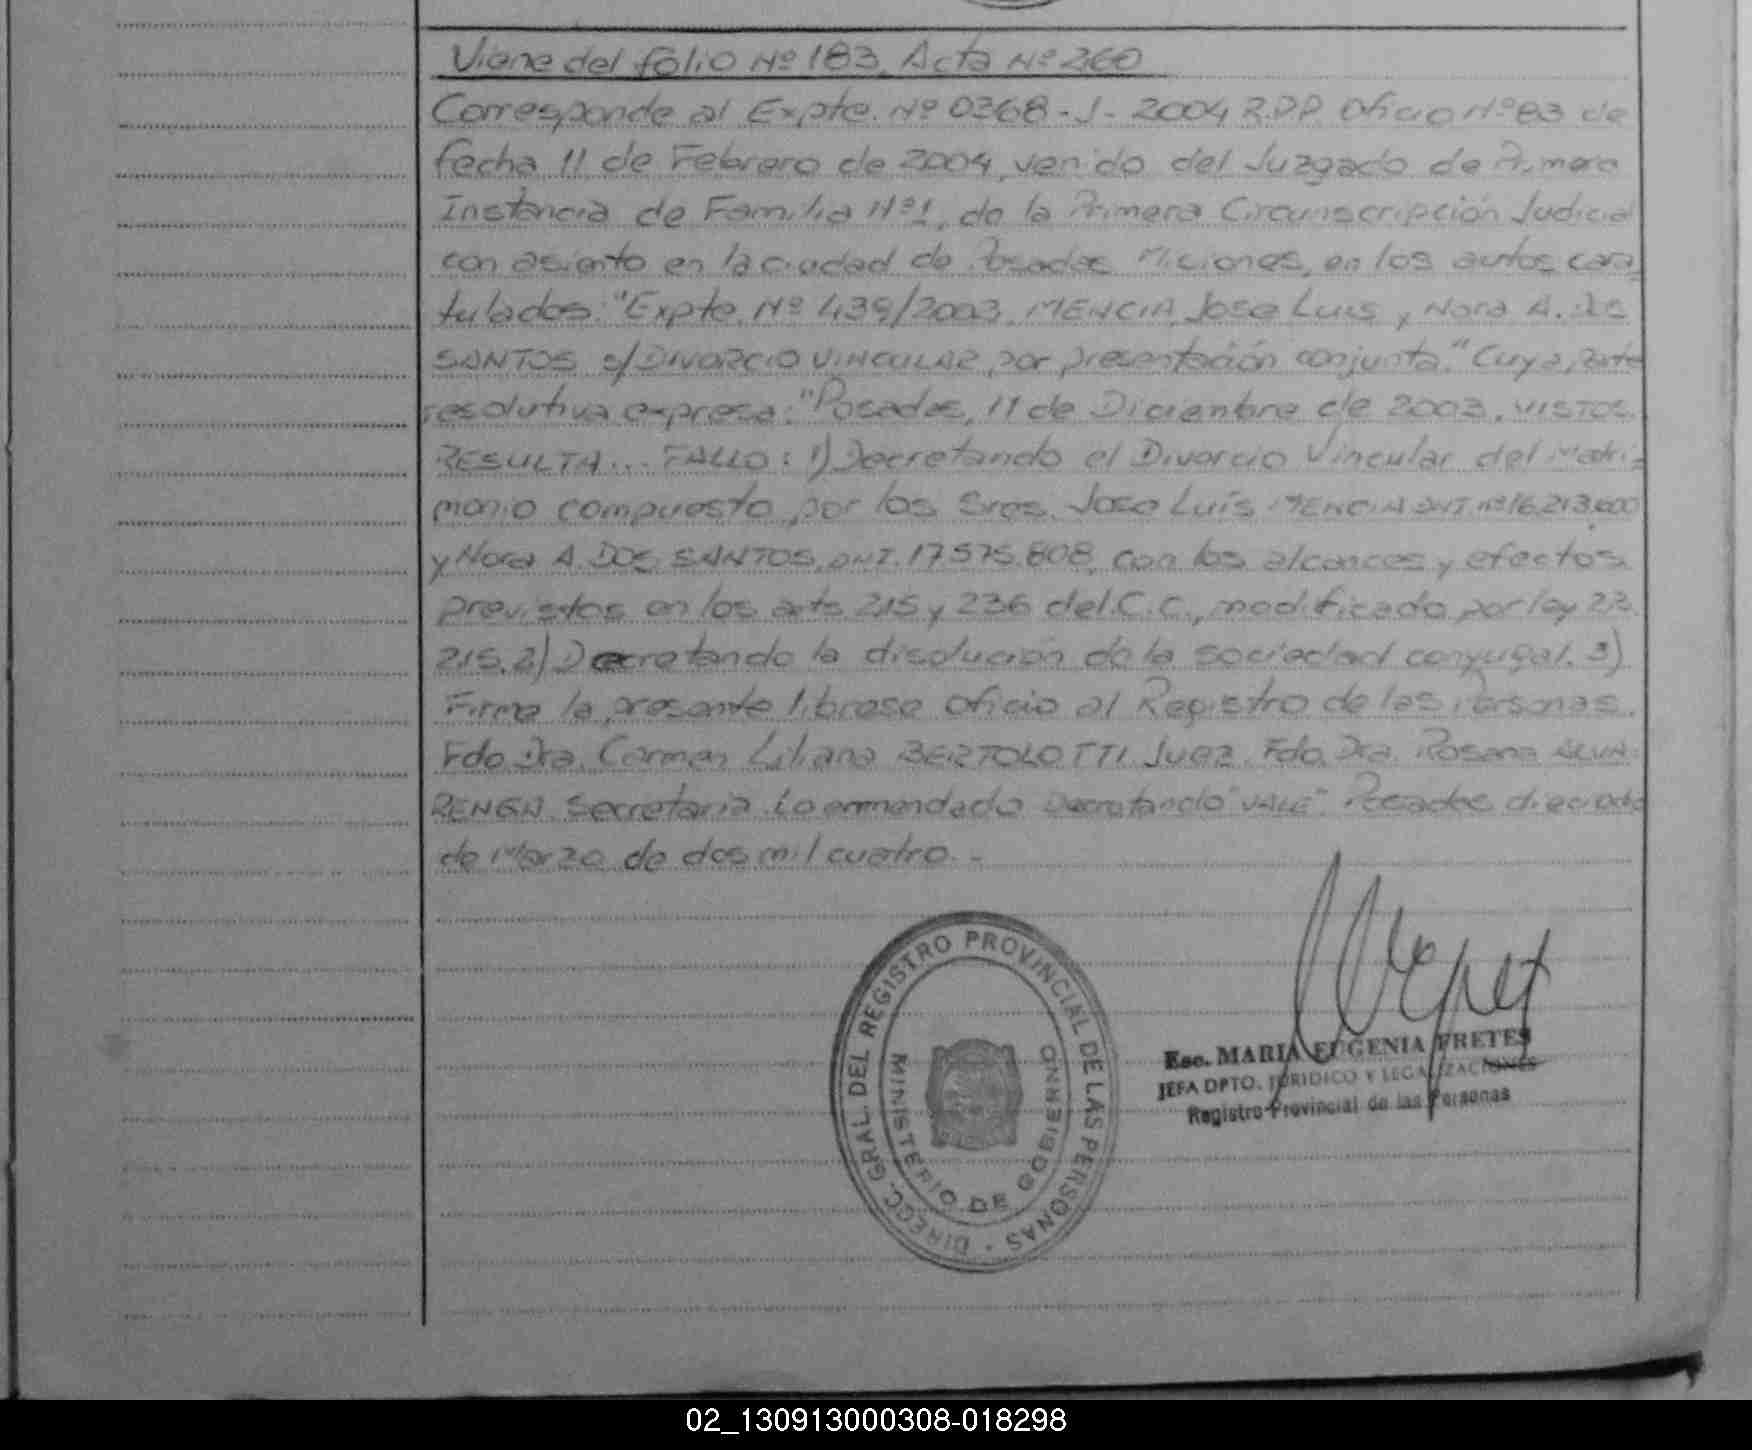 Viene del folio Nº 183, Acta Nº 260
Corresponde al Expte. Nº 0368-J-2004 R.P.P. Oficio Nº 83 de
fecha 11 de Febrero de 2004, venido del Juzgado de Primera
Instancia de Familia Nº 1, de la Primera Circunscripción Judicial
con asiento en la ciudad de Posadas Miciones, en los autos cara
tulados: "Expte. Nº 439/2003, MENCIA Jose Luis y Nora A. DOS
SANTOS s/DIVORCIO VINCULAR por presentación conjunta." Cuya parte
resolutiva expresa: "Posadas, 11 de Diciembre de 2003. VISTOS.
RESULTA... FALLO: 1) Decretando el Divorcio Vincular del Matri=
monio compuesto por los Sres. Jose Luís MENCIA DNI. Nº 16.213.600
y Nora A. DOS SANTOS, DNI. 17.575.808, con los alcances y efectos
previstos en los arts. 215 y 236 del C.C., modificado por ley 23.
215. 2) Decretando la disolución de la sociedad conyugal. 3)
Firme la presente librese oficio al Registro de las Personas.
Fdo. Dra. Carmen Liliana BERTOLOTTI Juez. Fdo. Dra. Rosana ALVA=
RENGA. Secretaria. Lo enmendado Decretando "VALE". Posadas dieciocho
de Marzo de dos mil cuatro.-
DIRECC. GRAL. DEL REGISTRO PROVINCIAL DE LAS PERSONAS ·
MINISTERIO DE GOBIERNO
Esc. MARIA EUGENIA FRETES
JEFA DPTO. JURIDICO Y LEGALIZACIONES
Registro Provincial de las Personas
02_130913000308-018298